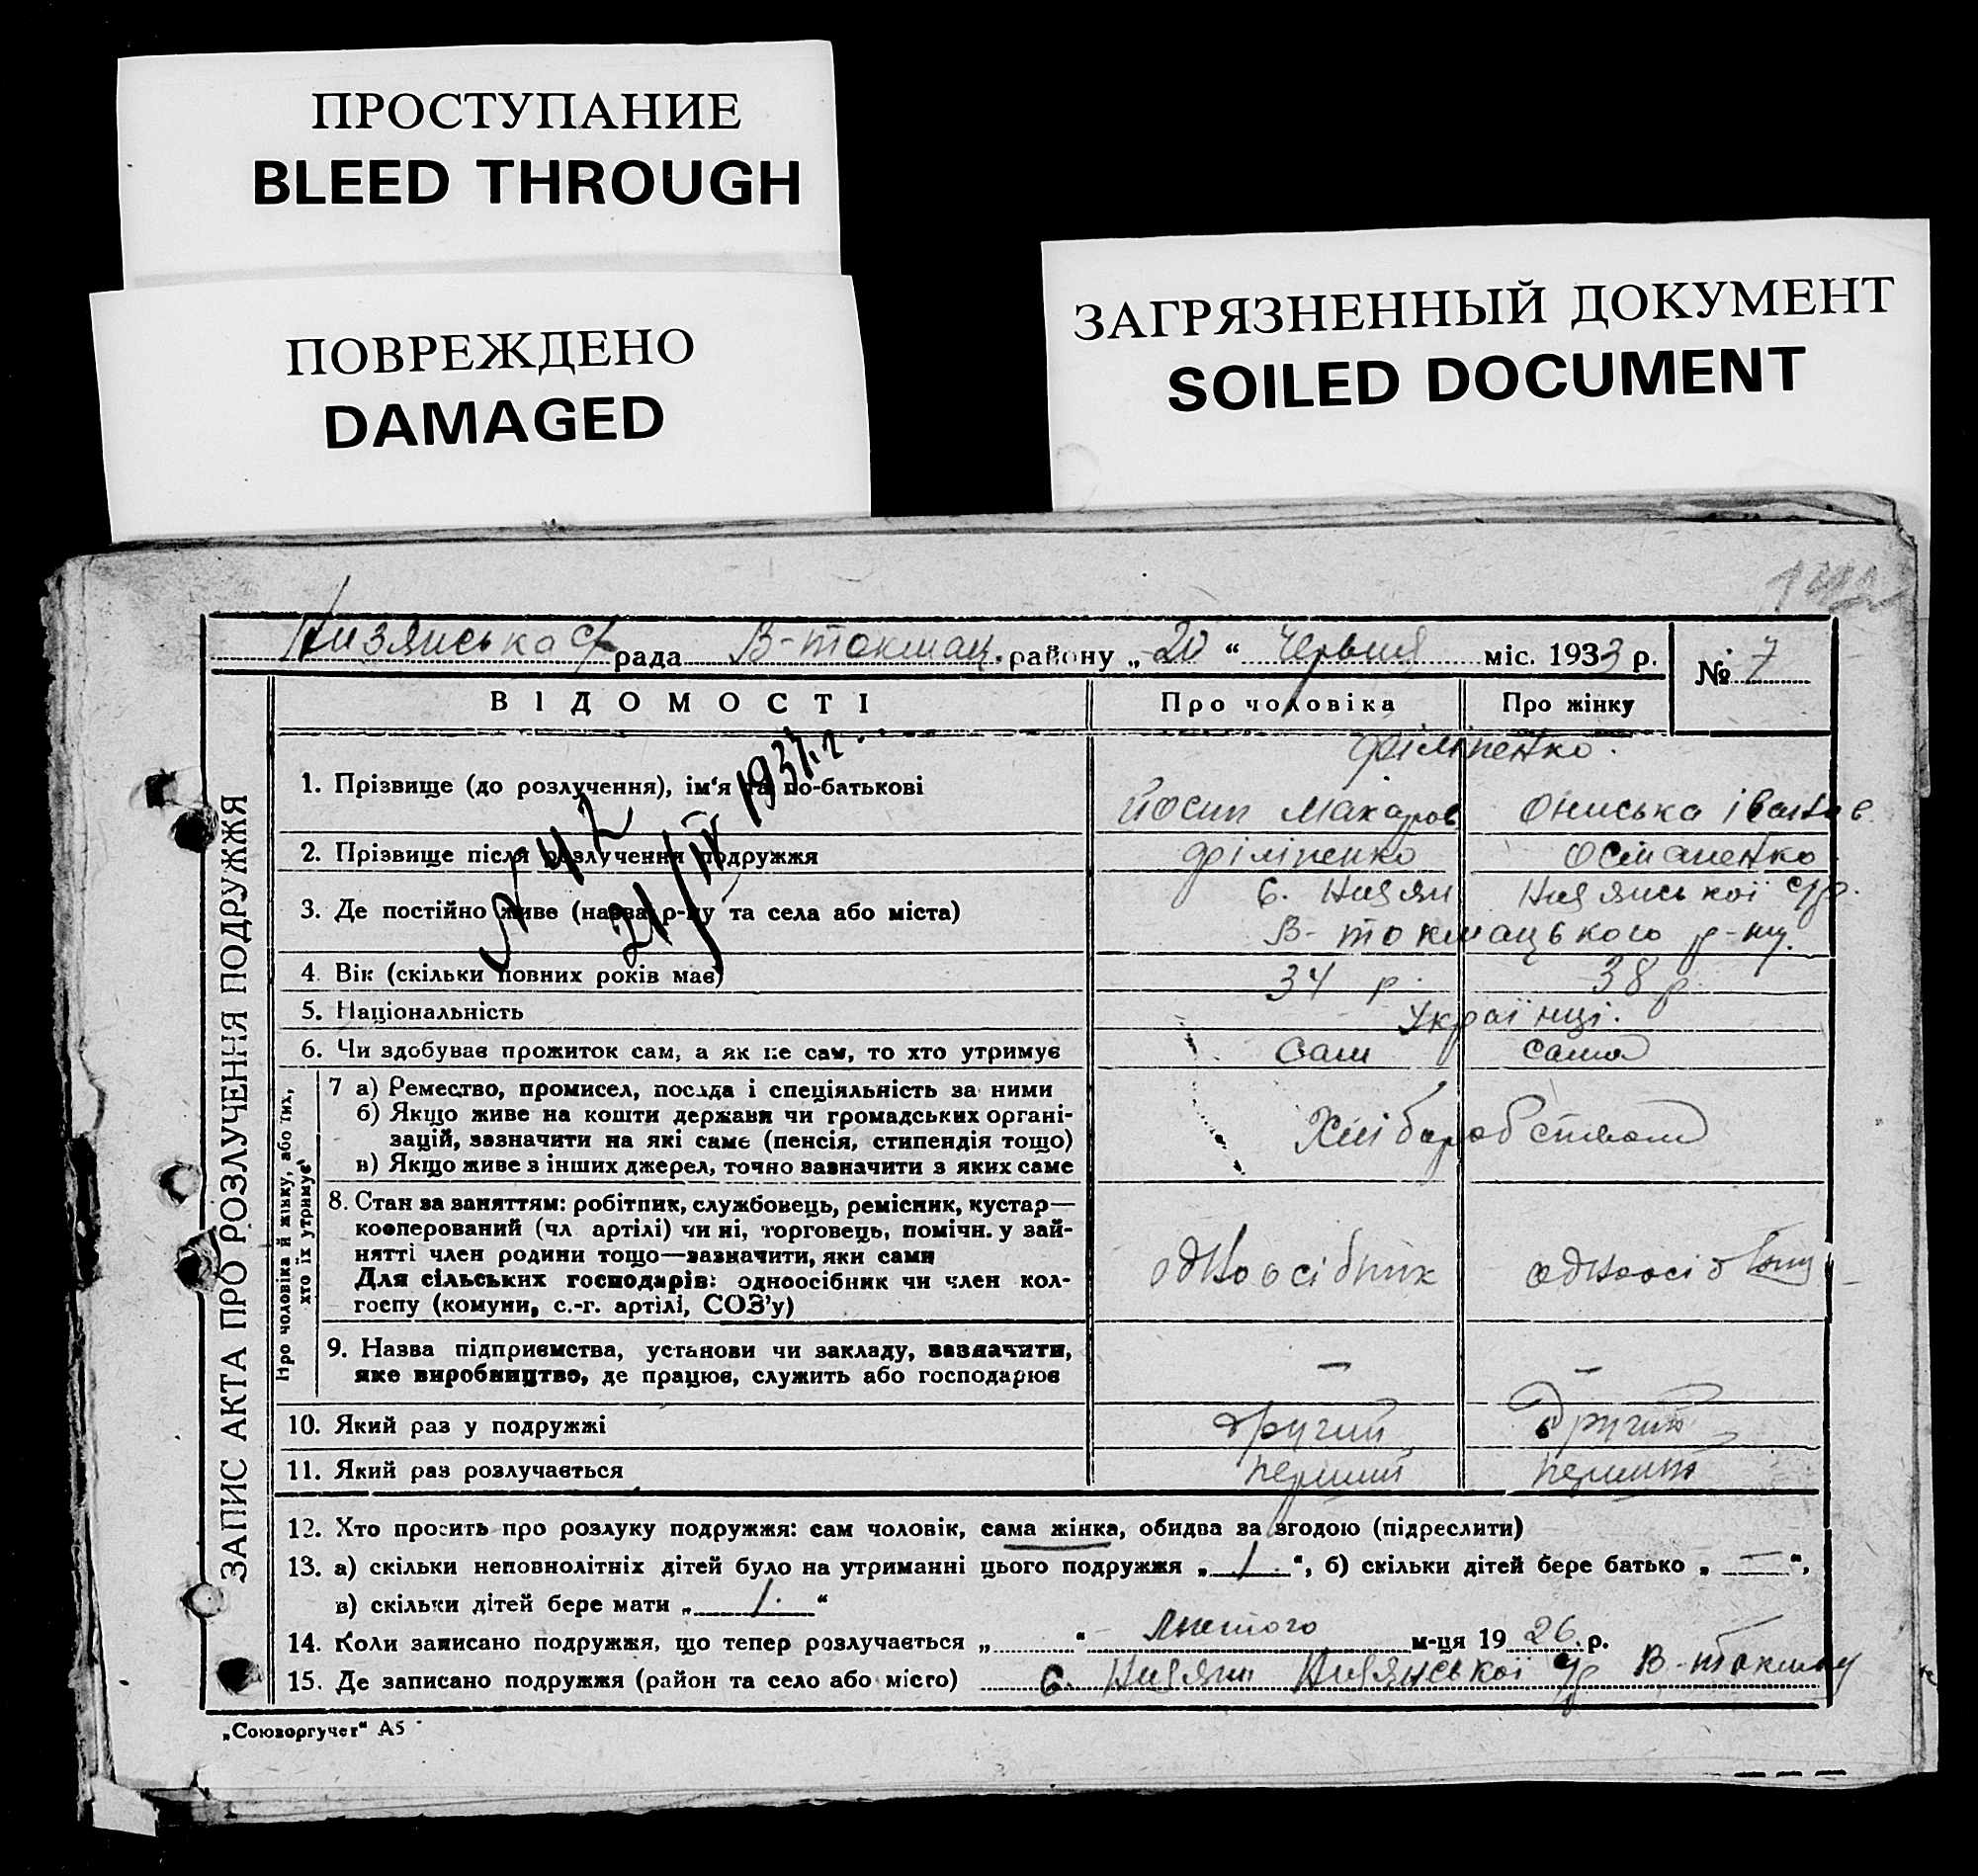 ПРОСТУПАНИЕ
BLEED THROUGH
ПОВРЕЖДЕНО
DAMAGED
ЗАГРЯЗНЕННЫЙ ДОКУМЕНТ
SOILED DOCUMENT
Низянська с/ рада В-токмац. району „20“ Червня міс. 1933 р. № 7
ЗАПИС АКТА ПРО РОЗЛУЧЕННЯ ПОДРУЖЖЯ
ВІДОМОСТІ Про чоловіка Про жінку
Філіпенко.
1. Прізвище (до розлучення), ім'я та по-батькові Йосип Макаров Ониська Іванов.
2. Прізвище після розлучення подружжя Філіпенко Остапенко
3. Де постійно живе (назва р-ну та села або міста) с. Низяни Низянської с/р.
В-токмацького р-ну.
4. Вік (скільки повних років має) 34 р. 38 р.
5. Національність Українці.
6. Чи здобуває прожиток сам, а як не сам, то хто утримує Сам сама
Про чоловіка й жінку, або тих, хто їх утримує
7 а) Ремество, промисел, посада і спеціяльність за ними
б) Якщо живе на кошти держави чи громадських органі-
зацій, зазначити на які саме (пенсія, стипендія тощо)
в) Якщо живе з інших джерел, точно зазначити з яких саме
Хліборобством
8. Стан за заняттям: робітник, службовець, ремісник, кустар—
кооперований (чл артілі) чи ні, торговець, помічн. у зай-
нятті член родини тощо—зазначити, яки сами
Для сільських господарів: одноосібник чи член кол-
госпу (комуни, с.-г. артілі, СОЗ'у)
одноосібник
9. Назва підприємства, установи чи закладу, зазначити,
яке виробництво, де працює, служить або господарює — —
10. Який раз у подружжі другий другий
11. Який раз розлучається перший перший
12. Хто просить про розлуку подружжя: сам чоловік, сама жінка, обидва за згодою (підреслити)
13. а) скільки неповнолітніх дітей було на утриманні цього подружжя „ 1. “, б) скільки дітей бере батько „ — “,
в) скільки дітей бере мати „ 1. “
14. Коли записано подружжя, що тепер розлучається „ “ Лютого м-ця 19 26. р.
15. Де записано подружжя (район та село або місто) с. Низяни Низянської с/р В-токмац
„Союзоргучет“ А5